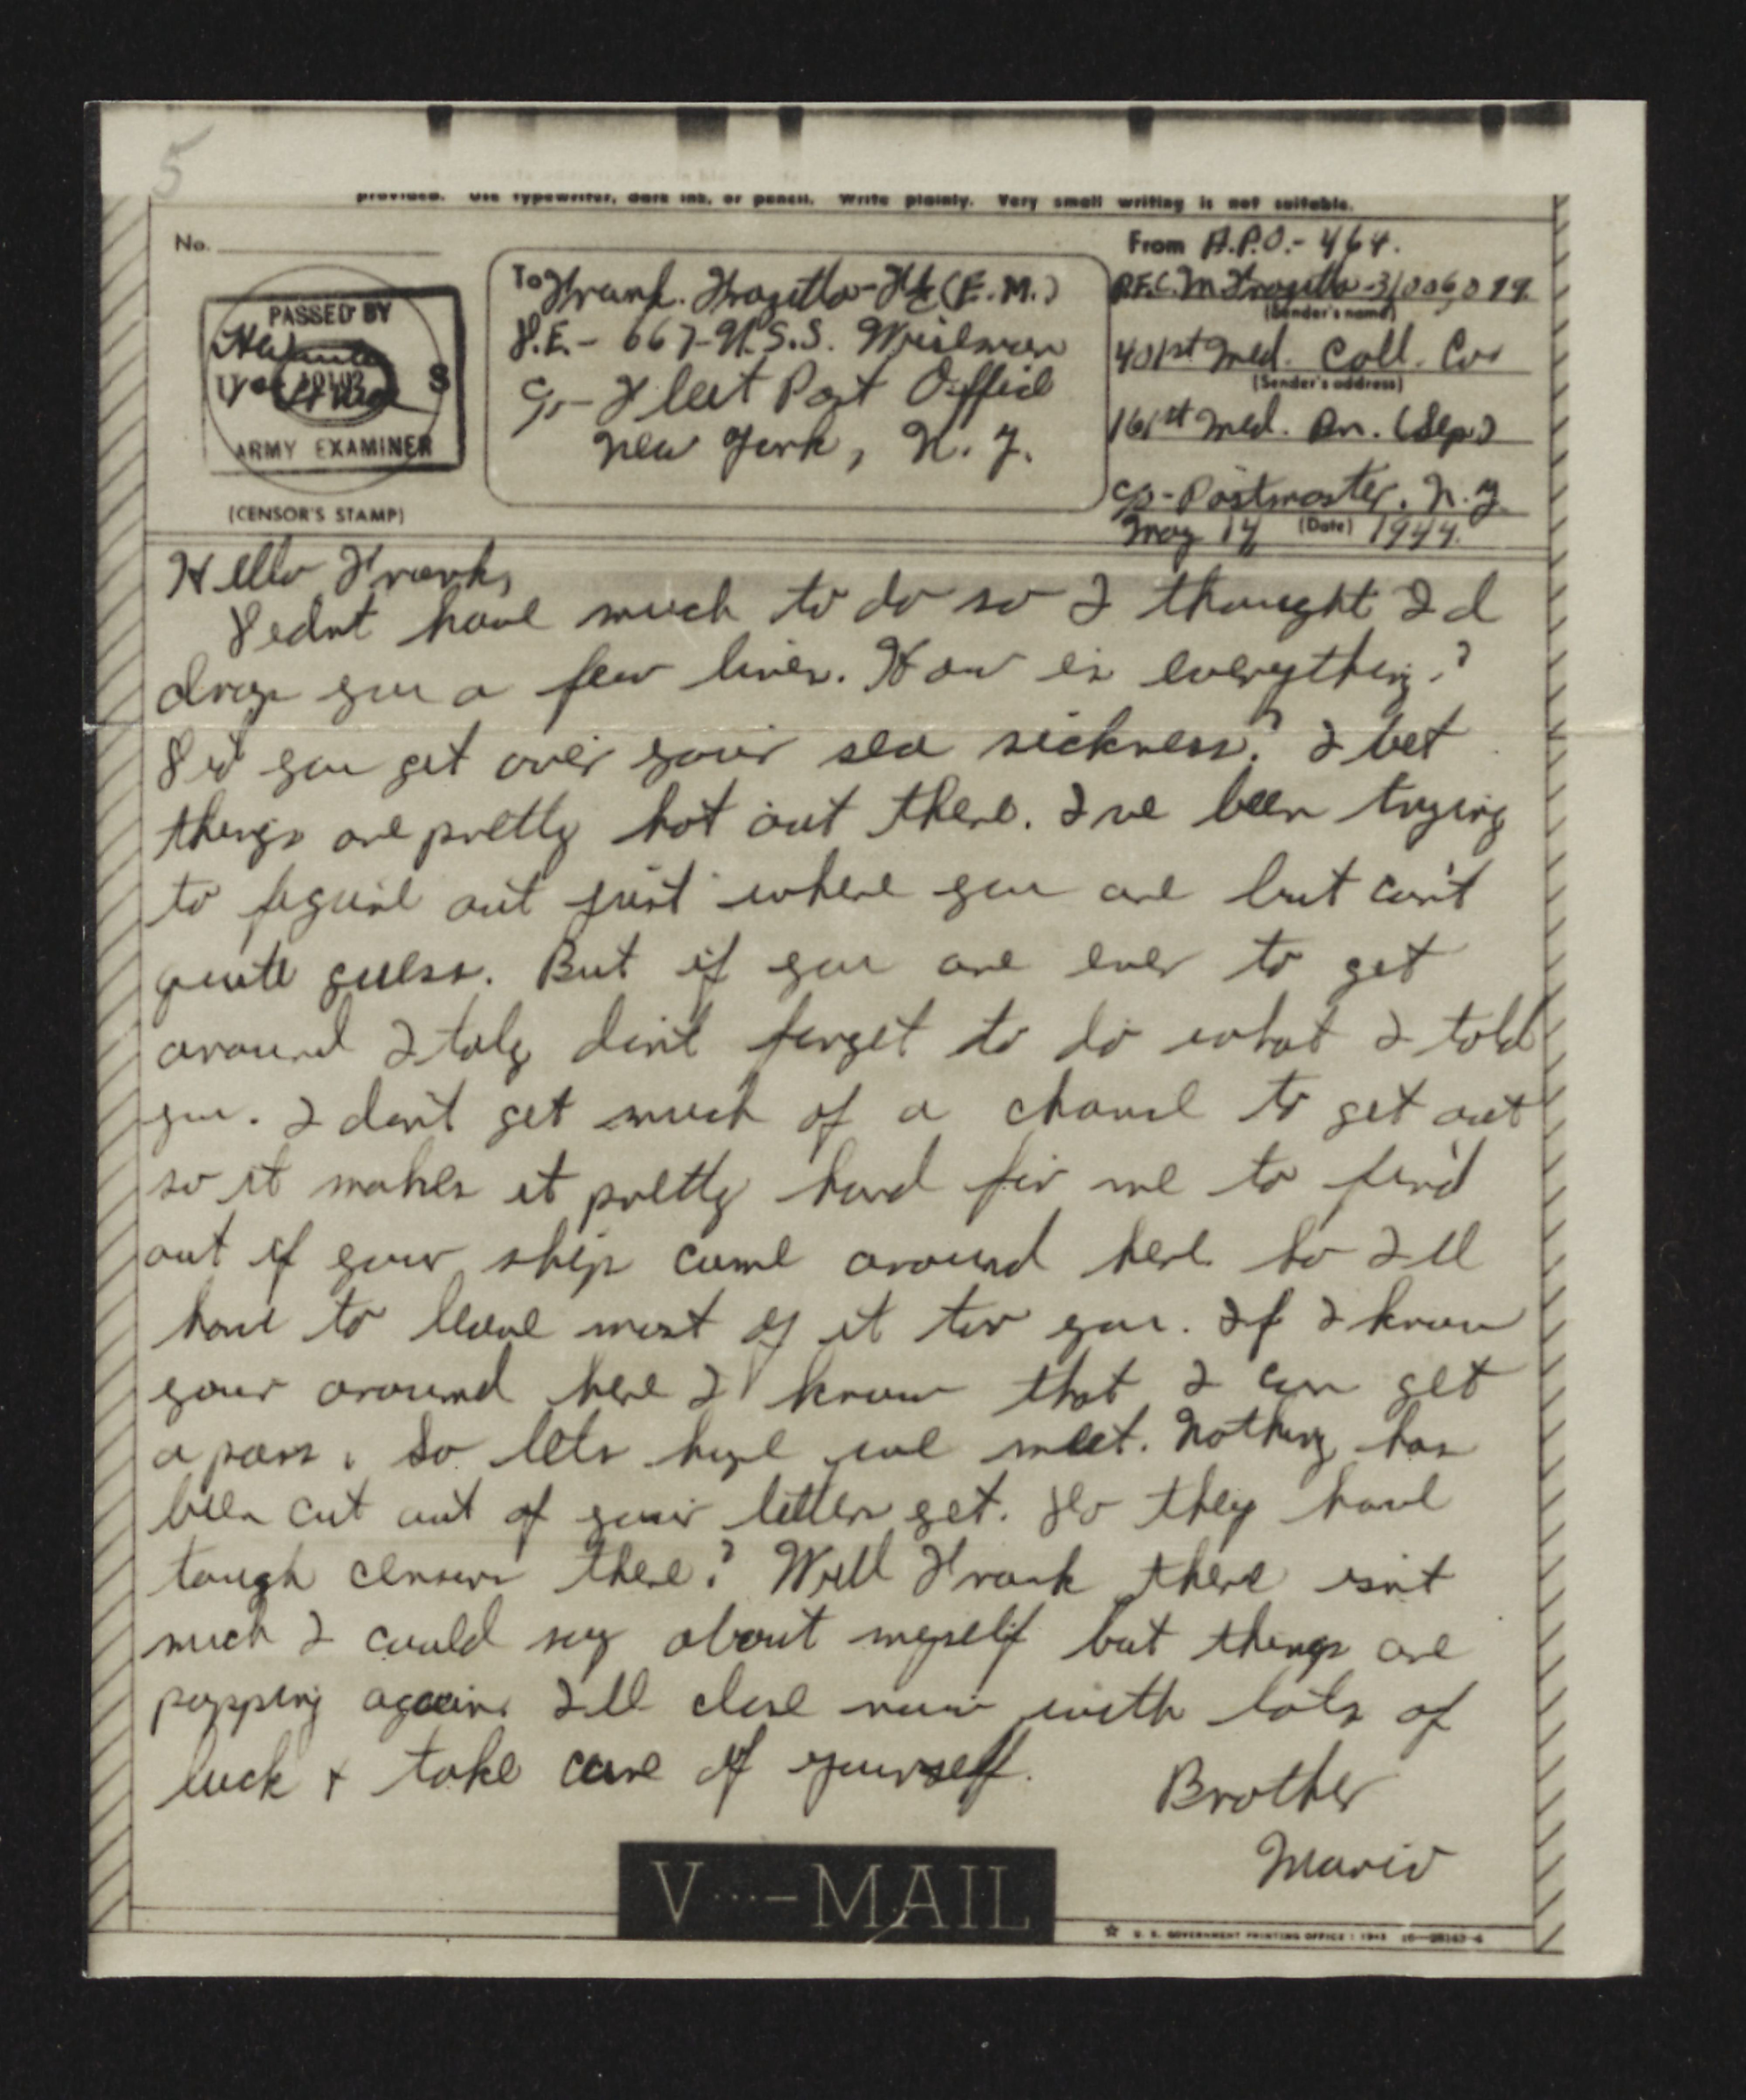 5
provided. Use typewriter, dark ink, or pencil. Write plainly. Very small writing is not suitable.
No.
PASSED BY
S
ARMY EXAMINER
(CENSOR'S STAMP)
To Frank. (E.M.)
D.E. - 667 - U.S.S. Wiseman
c/o - Fleet Post Office
New York, N.Y.
From A.P.O. - 464.
P.F.C. M
(Sender's name)
401st Med. Coll. Co.
(Sender's address)
161st Med. Bn. (Sep)
c/o - Postmaster, N.Y.
May 14 (Date) 1944.
Hello Frank,
Didnt have much to do so I thought I d
drop you a few lines. How is everything?
Did you get over your sea sickness? I bet
things are pretty hot out there. I've been trying
to figure out just where you are but can't
quite guess. But if you are ever to get
around Italy don't forget to do what I told
you. I don't get much of a chance to get out
so it makes it pretty hard for me to find
out if your ship came around here so I'll
have to leave most of it to you. If I know
your around here I know that I can get
a pass. So lets hope we meet. Nothing has
been cut out of your letters yet. Do they have
tough censors there? Well Frank there isn't
much I could say about myself but things are
popping again. I'll close now with lots of
luck & take care of yourself.
Brother
Mario
V···—MAIL
☆ U. S. GOVERNMENT PRINTING OFFICE : 1943 16—28143-4